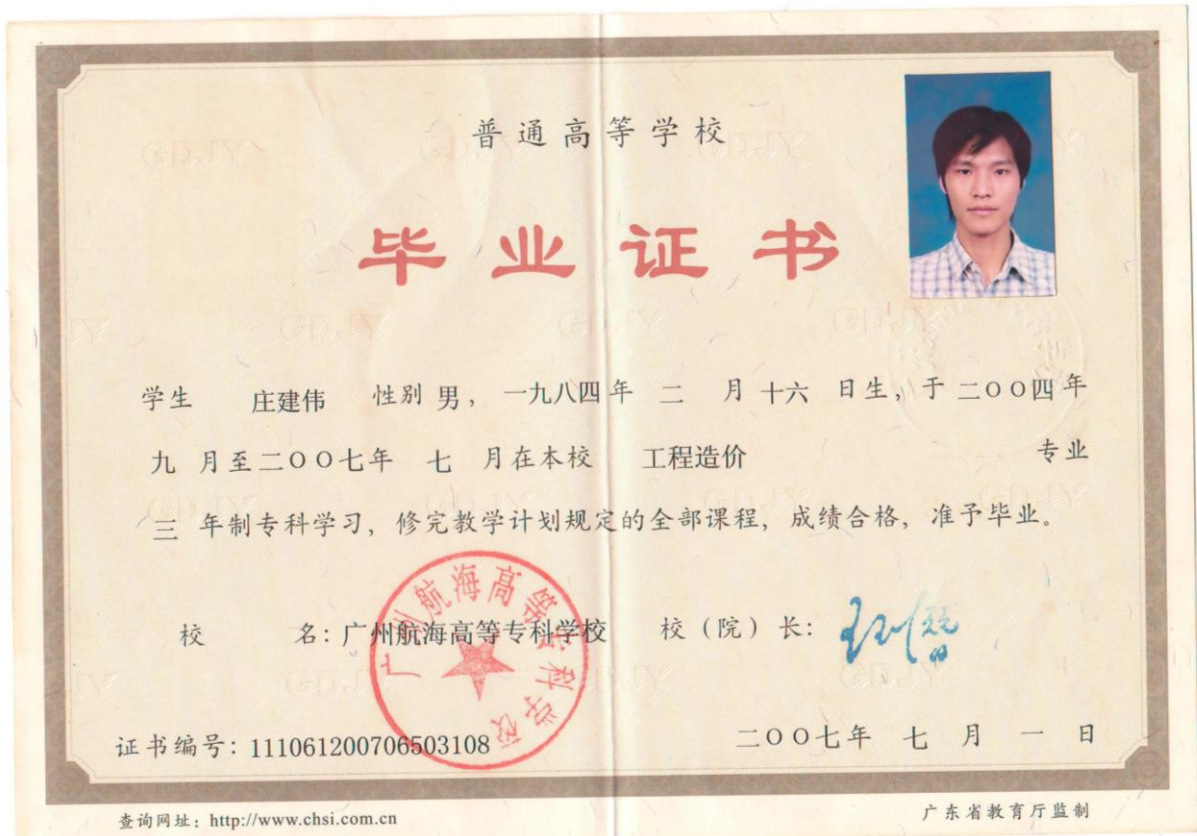 普通高等学校
毕业证书
学生 庄建伟 性别 男，一九八四年 二 月 十六 日生，于 二〇〇四年
九 月至二〇〇七年 七 月在本校 工程造价 专业
三 年制专科学习，修完教学计划规定的全部课程，成绩合格，准予毕业。
广州航海高等专科学校
校 名：广州航海高等专科学校 校（院）长：
证书编号：111061200706503108 二〇〇七年 七 月 一 日
查询网址：http://www.chsi.com.cn 广东省教育厅监制